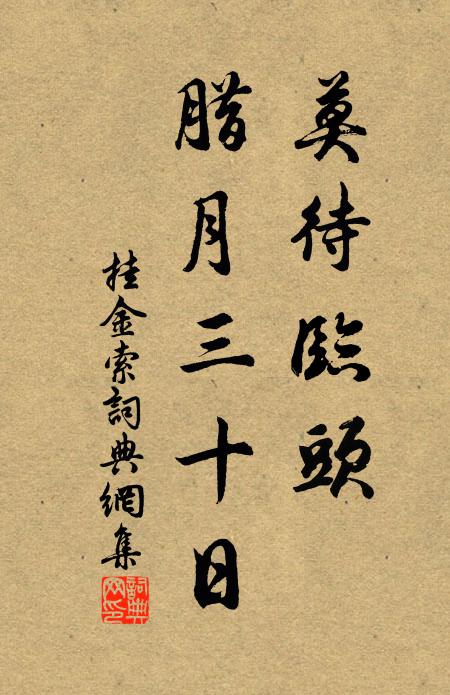 莫待臨頭
腊月三十日
挂金索詞典網集
詞典
网印